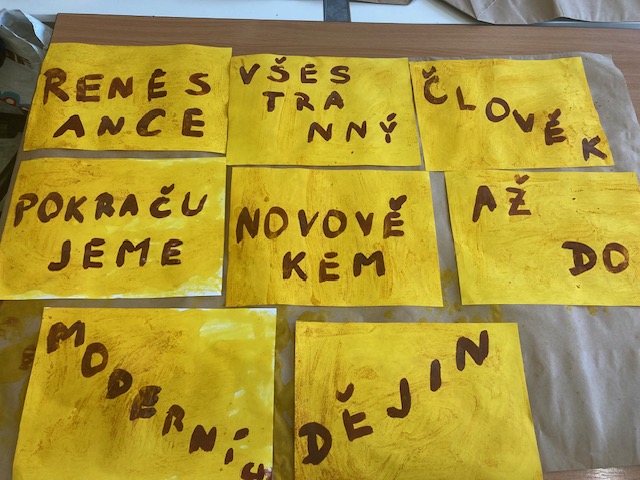 RENÉS
ANCE
VŠES
TRA
NNÝ
ČLOVĚK
POKRAČU
JEME
NOVOVĚ
KEM
AŽ
DO
MODERNÍCH
DĚJIN